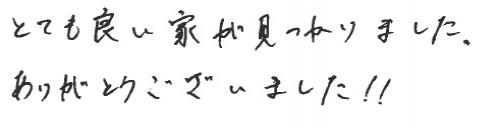 とても良い家が見つかりました。
ありがとうございました!!